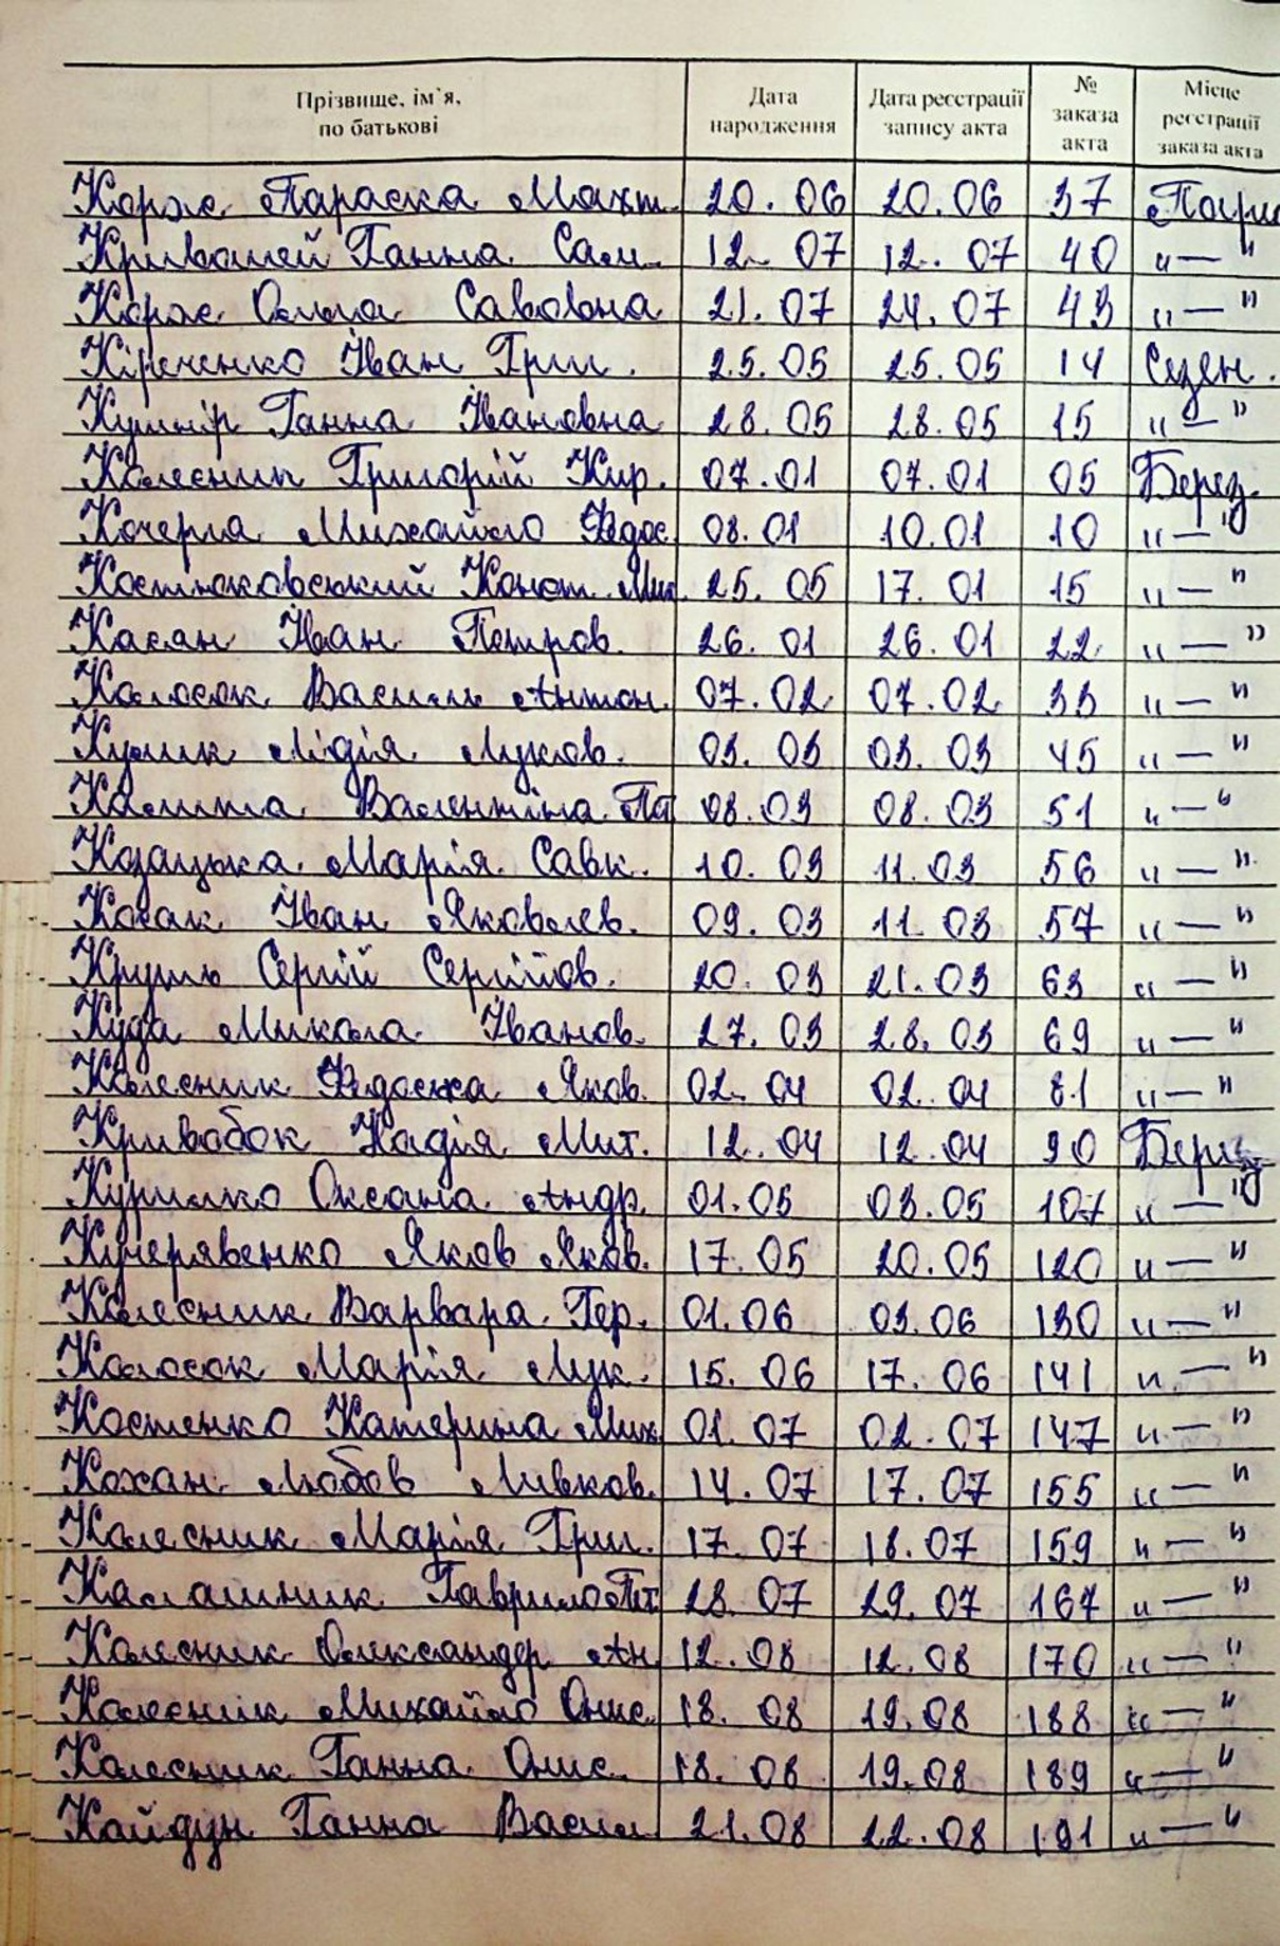 Прізвище, ім`я, по батькові Дата народження Дата реєстрації запису акта № заказа акта Місце реєстрації заказа акта
Корж Параска Махт. 20.06 20.06 37
Кривошей Ганна Сам. 12.07 12.07 40 "—"
Корж Ольга Савовна 21.07 24.07 43 "—"
Кіреченко Іван Григ. 25.05 25.05 14 Сезен.
Кушнір Ганна Івановна 28.05 28.05 15 "—"
Колесник Григорій Кир. 07.01 07.01 05 Берез.
Кочерга Михайло Федос. 08.01 10.01 10 "—"
Костюковський Конот. Мик. 25.05 17.01 15 "—"
Касян Іван Петров. 26.01 26.01 22 "—"
Колосок Василь Антон. 07.02 07.02 33 "—"
Кулик Лідія Луков. 03.03 03.03 45 "—"
Калита Валентіна Пт 08.03 08.03 51 "—"
Козацька Марія Савк. 10.03 11.03 56 "—"
Козак Іван Яковлев. 09.03 11.03 57 "—"
Круль Сергій Сергійов. 20.03 21.03 63 "—"
Куда Микола Іванов. 27.03 28.03 69 "—"
Колесник Федоска Яков. 02.04 02.04 81 "—"
Кривобок Надія Мит. 12.04 12.04 90 Берез
Курилко Оксана Андр. 01.05 03.05 107 "—"
Кучерявенко Яков Яков. 17.05 20.05 120 "—"
Колесник Варвара Гер. 01.06 03.06 130 "—"
Колосок Марія Лук. 15.06 17.06 141 "—"
Костенко Катерина Мих. 01.07 02.07 147 "—"
Кохан Любов Левков. 14.07 17.07 155 "—"
Колесник Марія Григ. 17.07 18.07 159 "—"
Калашник Гаврило Пт. 28.07 29.07 167 "—"
Колесник Олександр Ан 12.08 12.08 170 "—"
Колесник Михайло Онис. 18.08 19.08 188 "—"
Колесник Ганна Онис. 18.08 19.08 189 "—"
Кайдун Ганна Васил 21.08 22.08 191 "—"